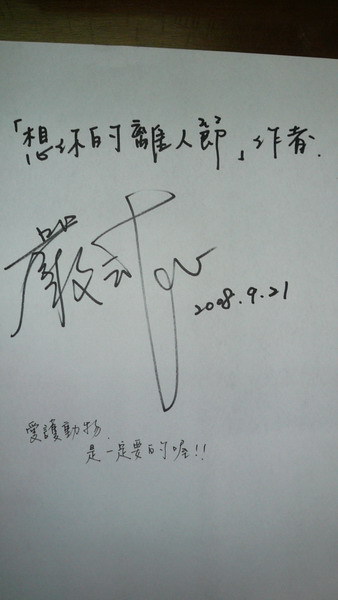 「想你的離人節」作者.
嚴云
2008.9.21
愛護動物.
是一定要的喔!!